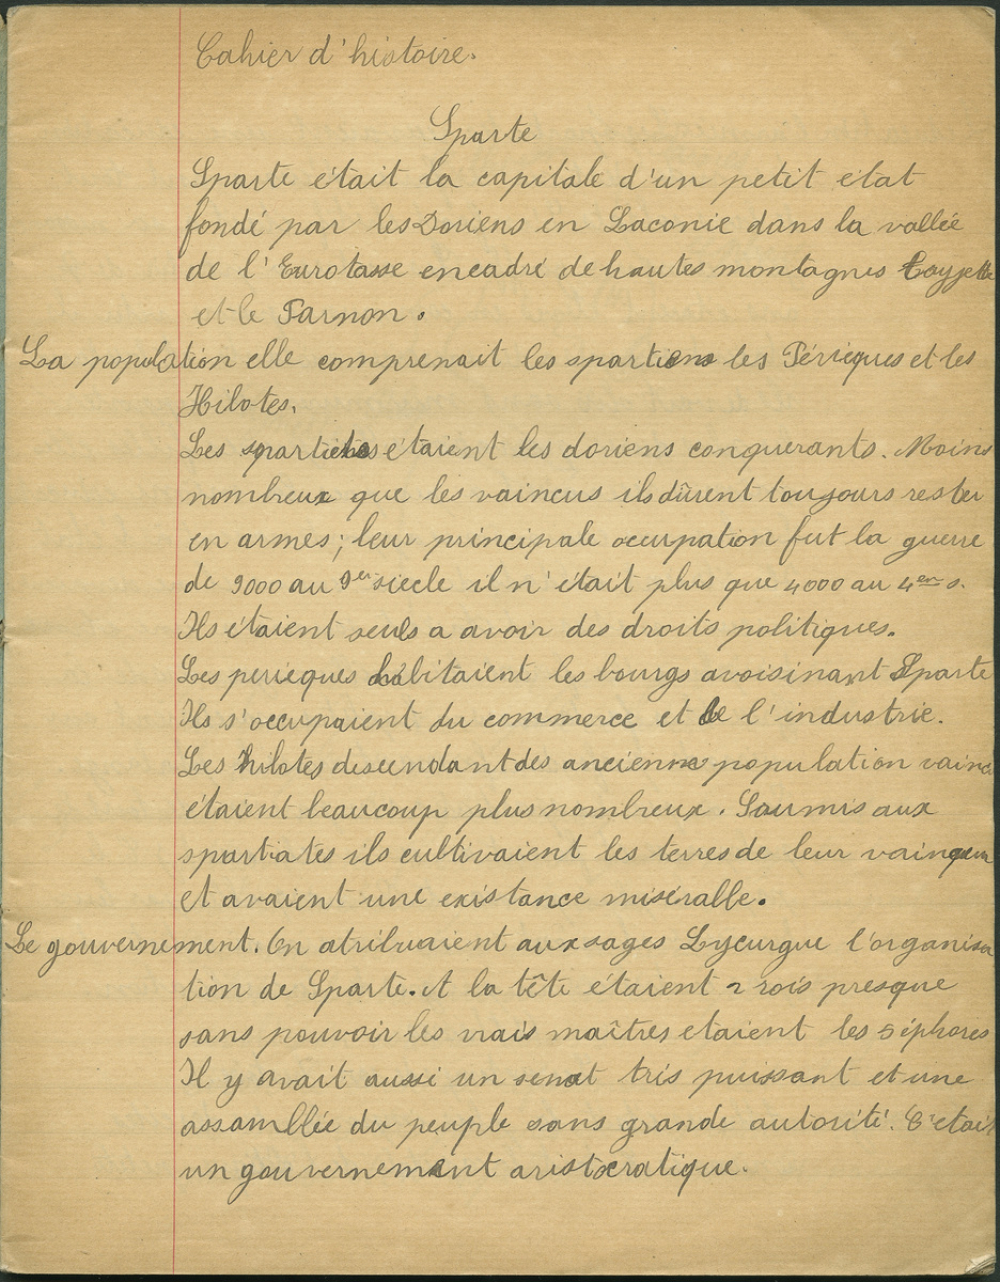 Cahier d'histoire.
Sparte
Sparte était la capitale d'un petit état
fondé par les Doriens en Laconie dans la vallée
de l'Eurotasse encadré de hautes montagnes Tayjette
et le Parnon.
La population elle comprenait les spartiens les Périèques et les
Hilotes.
Les spartiates étaient les doriens conquerants. Moins
nombreux que les vaincus ils dûrent toujours rester
en armes ; leur principale occupation fut la guerre
de 9000 au 9er siecle il n'était plus que 4000 au 4em s.
Ils étaient seuls a avoir des droits politiques.
Les perieques habitaient les bourgs avoisinant Sparte
Ils s'occupaient du commerce et de l'industrie.
Les hilotes descendant des ancienne population vainc
étaient beaucoup plus nombreux. Soumis aux
spartiates ils cultivaient les terres de leur vainqueur
et avaient une existance miseralle.
Le gouvernement. On atribuaient aux sages Lycurgue l'organisa
tion de Sparte. A la tête étaient 2 rois presque
sans pouvoir les vrais maîtres etaient les 5 éphores
Il y avait aussi un senat très puissant et une
assamblée du peuple sans grande autorité. C'etait
un gouvernement aristocratique.